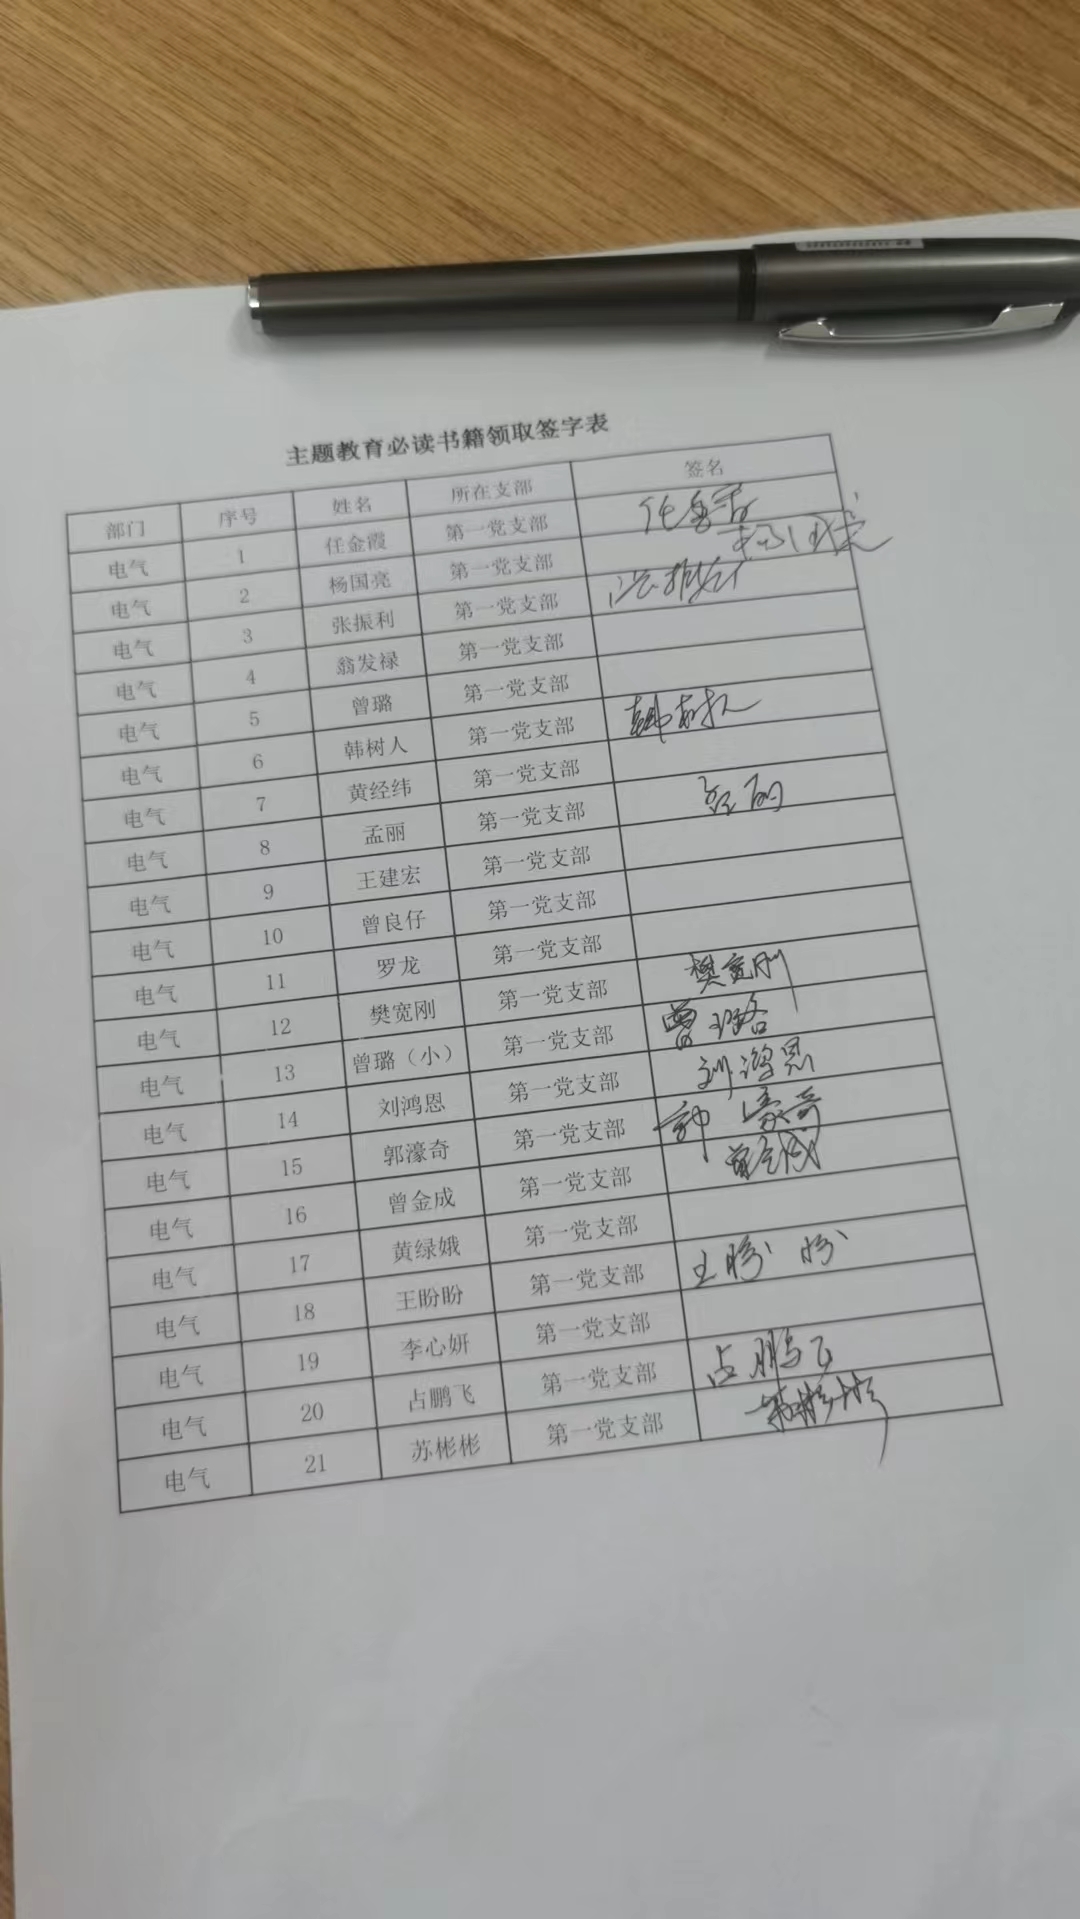 主题教育必读书籍领取签字表
部门 序号 姓名 所在支部 签名
电气 1 任金霞 第一党支部 任金霞
电气 2 杨国亮 第一党支部 杨国亮
电气 3 张振利 第一党支部
电气 4 翁发禄 第一党支部
电气 5 曾璐 第一党支部
电气 6 韩树人 第一党支部 韩树人
电气 7 黄经纬 第一党支部
电气 8 孟丽 第一党支部 孟丽
电气 9 王建宏 第一党支部
电气 10 曾良仔 第一党支部
电气 11 罗龙 第一党支部
电气 12 樊宽刚 第一党支部 樊宽刚
电气 13 曾璐（小） 第一党支部 曾璐
电气 14 刘鸿恩 第一党支部 刘鸿恩
电气 15 郭濠奇 第一党支部 郭濠奇
电气 16 曾金成 第一党支部 曾金成
电气 17 黄绿娥 第一党支部
电气 18 王盼盼 第一党支部 王盼盼
电气 19 李心妍 第一党支部
电气 20 占鹏飞 第一党支部 占鹏飞
电气 21 苏彬彬 第一党支部 苏彬彬